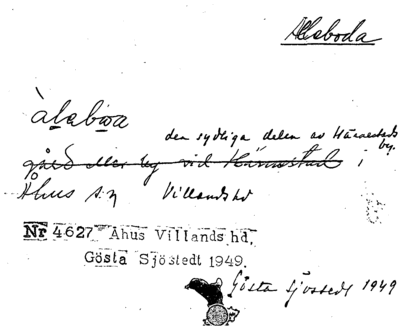 Alsboda
àlabωa
den sydliga delen av Härnestads
by.
gård eller by vid Härnestad i
Åhus sn Villands hd
Nr 4627 Åhus Villands hd,
Gösta Sjöstedt 1949.
Gösta Sjöstedt 1949